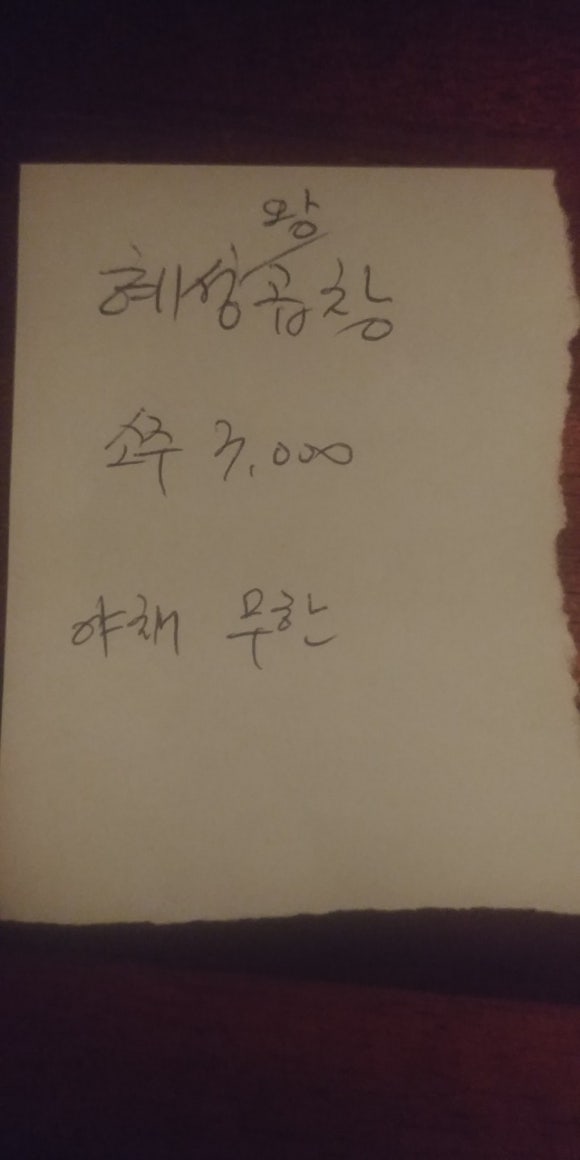 왕
혜성곱창
소주 3,000
야채 무한